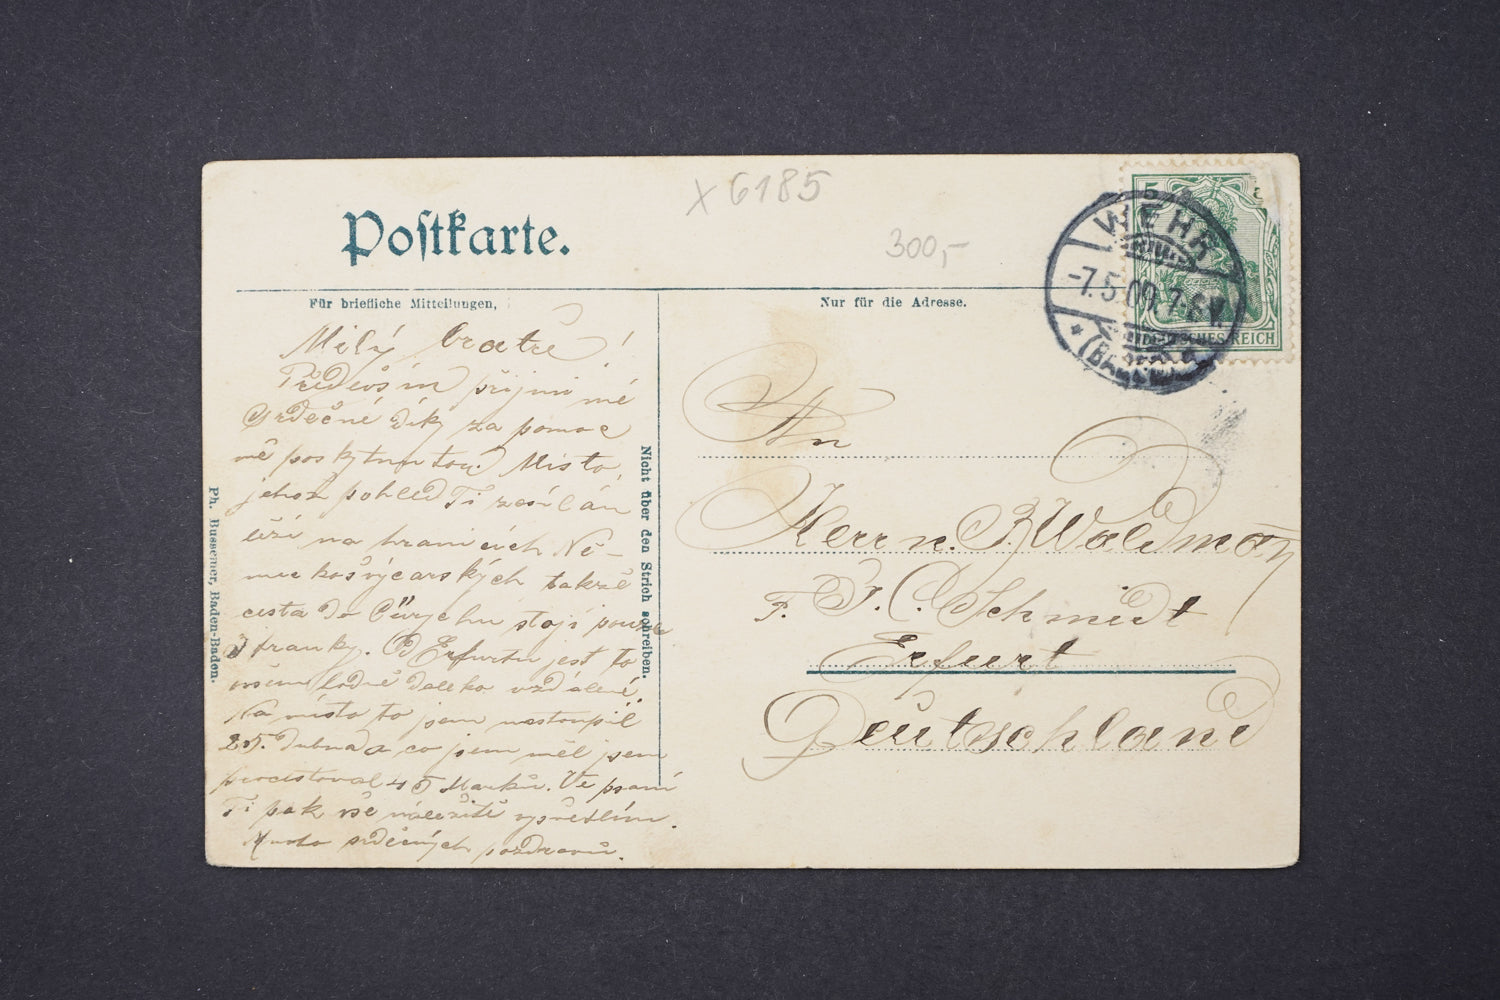 X 6185
300,-
Postkarte.
Für briefliche Mitteilungen,
Nur für die Adresse.
5
WEHR
-7.5.09.
(BADEN)
DEUTSCHES REICH
Milý bratře!
Předevšim přijmi mé
srdečné díky za pomoc
mě poskytnutou. Misto,
jehož pohled Ti zasílám
leží na hranicích Ně-
mecko švýcarských takže
cesta do Cürychu stojí pouze
3 franky. Od Erfurtu jest to
ovšem hodně daleko vzdálené.
Na místo to jsem nastoupil
25. dubna a co jsem měl jsem
procestoval 45 Marků. Ve psaní
Ti pak vše náležitě vysvětlím.
Mnoho srdečných pozdravů.
Nicht über den Strich schreiben.
Ph. Bussemer, Baden-Baden.
An
Herrn. B. Waldman
F. J. C. Schmidt
Erfurt
Deutschland